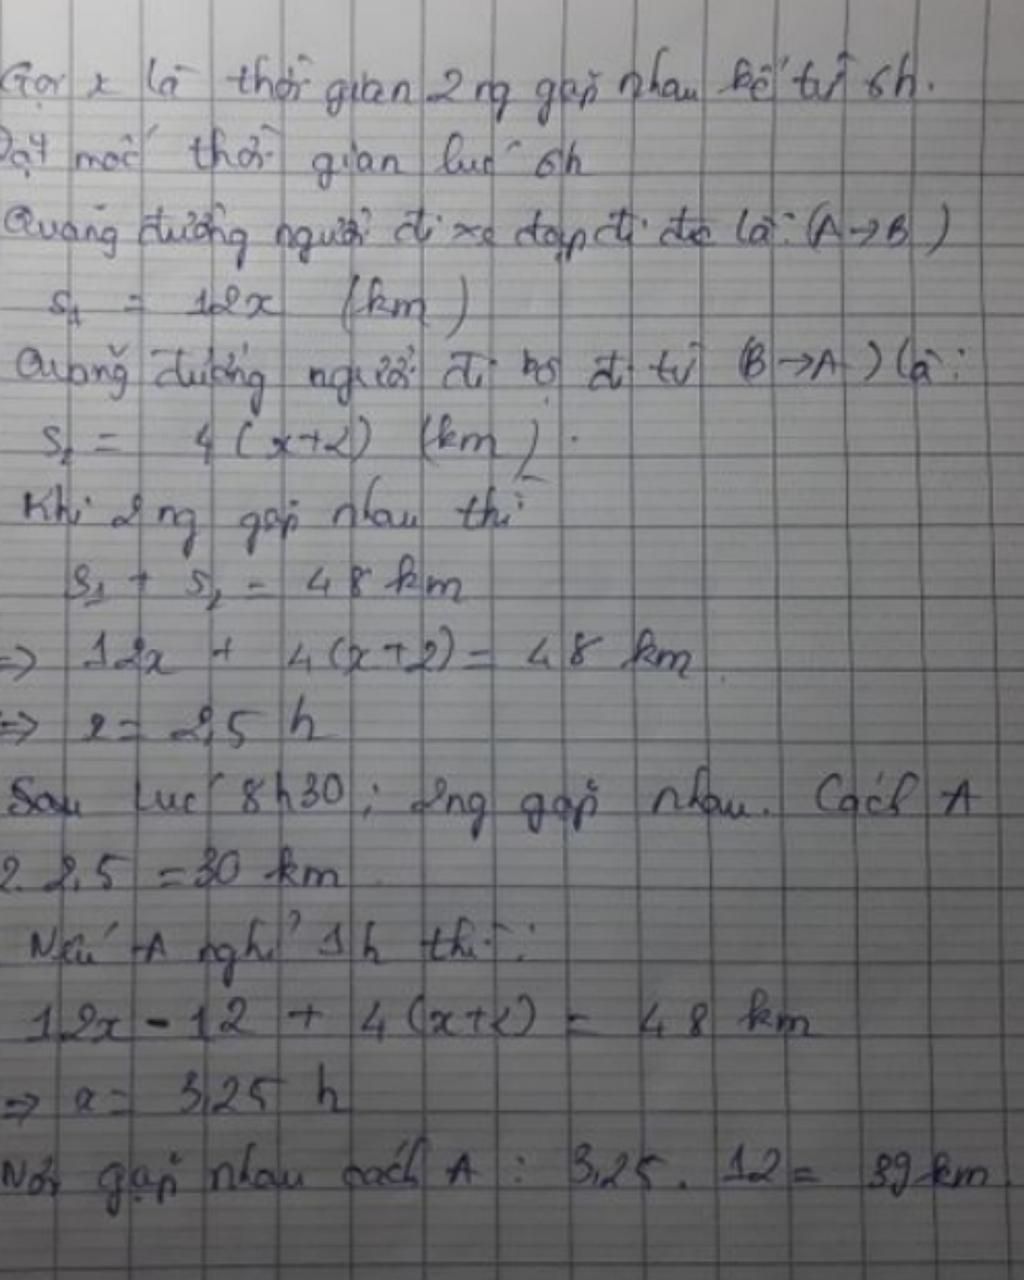 Gọi x là thời gian 2 ng gặp nhau kể từ 6h.
Đặt mốc thời gian lúc 6h
Quãng đường người đi xe đạp đi đc là: (A→B)
S₁ = 12x (km)
Quãng đường người đi bộ đi từ (B→A) là:
S₂ = 4(x+2) (km).
Khi 2 ng gặp nhau thì
S₁ + S₂ = 48 km
=> 12x + 4(x+2) = 48 km
=> x = 2,5 h
Sau lúc 8h30; 2ng gặp nhau. Cách A
2. 2,5 = 30 km
Nếu A nghỉ 1h thì:
12x - 12 + 4(x+2) = 48 km
=> x = 3,25 h
Nơi gặp nhau cách A : 3,25. 12 = 39 km